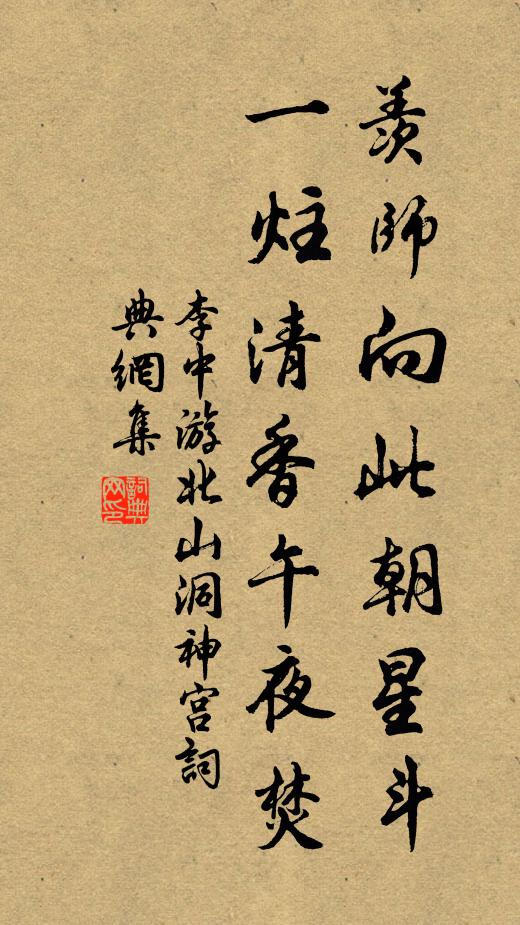 羨師向此朝星斗
一炷清香午夜焚
李中游北山洞神宫詞
典網集
詞典
网印